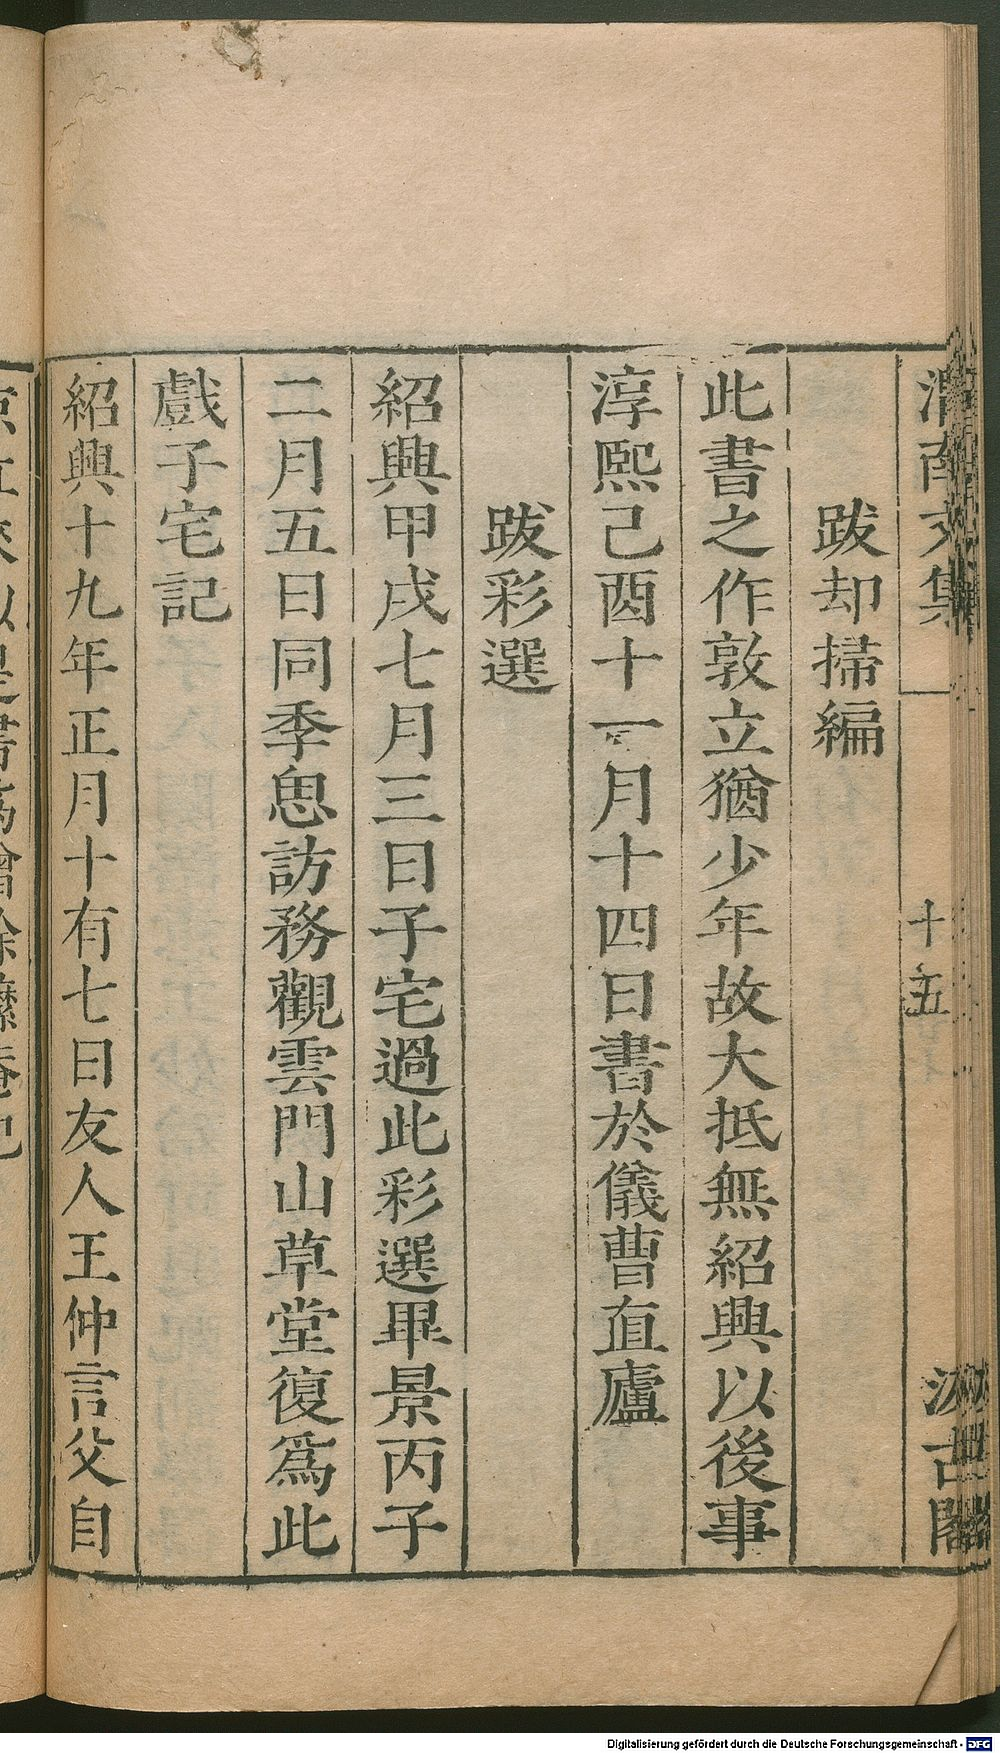 渭南文集
十五
汲古閣
跋却掃編
此書之作敦立猶少年故大抵無紹興以後事
淳熙己酉十一月十四日書於儀曹直廬
跋彩選
紹興甲戌七月三日子宅過此彩選畢景丙子
二月五日同季思訪務觀雲門山草堂復爲此
戲子宅記
紹興十九年正月十有七日友人王仲言父自
Digitalisierung gefördert durch die Deutsche Forschungsgemeinschaft - DFG